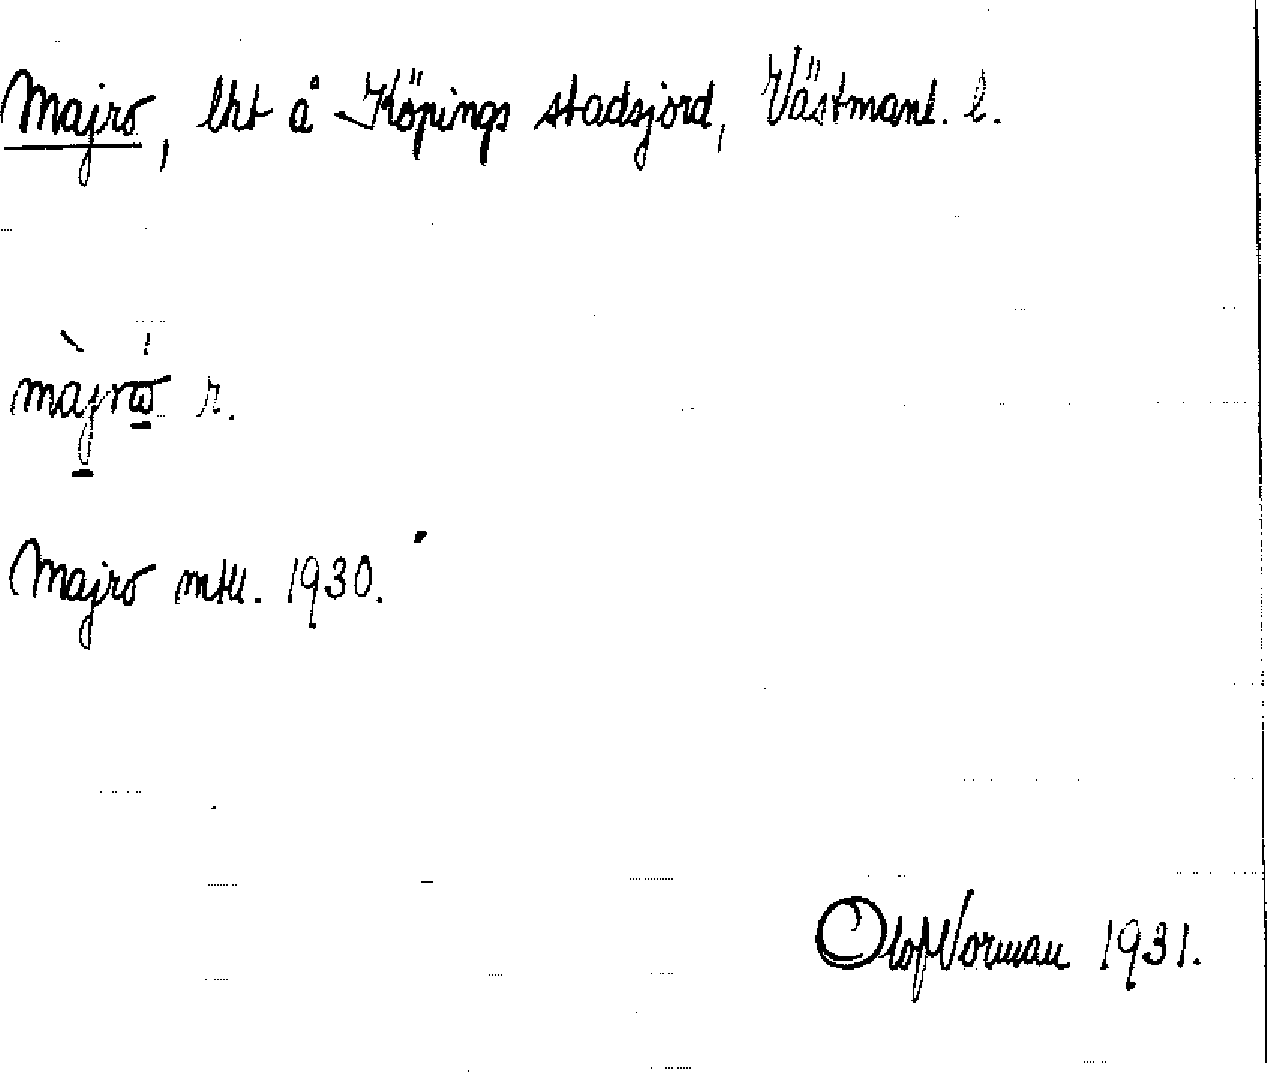 Majro, lht å Köpings stadsjord, Västmanl. l.
màjrω r.
Majro mtll. 1930.
Olof Norman 1931.